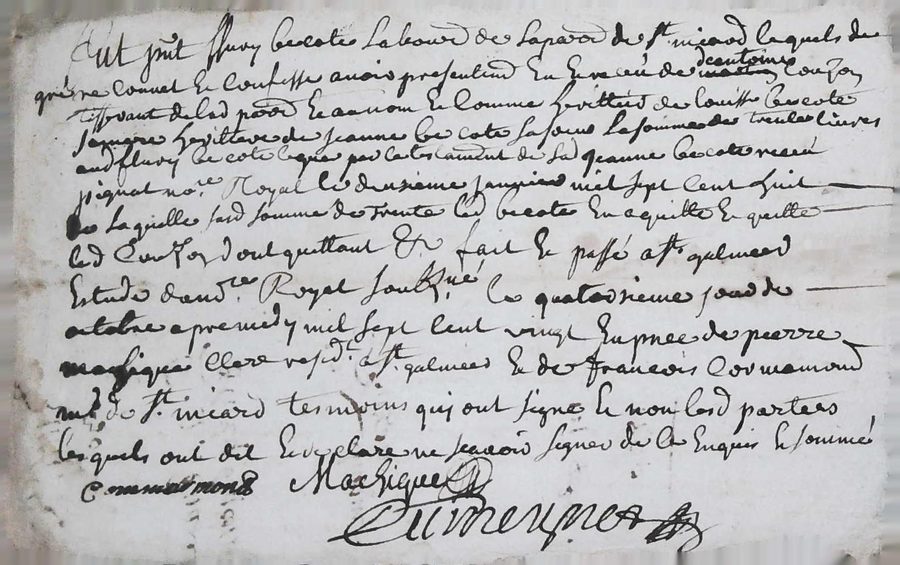 Fut pnt fleury becote Labour de La parr de St. nicard lequels de
gré reconnet Ec Confesse avoir presentmd En Et receu de dentoine Couzon
Tisserant de lad parr Ec au nom Et Comme heritteres de Louisse becote
sa mere heritter de jeanne becote sa soeur La somme de trente Livres
aud fleury becote legue par le testament de lad jeanne becote receu
pignat nore Royal le deusieme janvier mil sept Cent huit
de Laquelle susd somme de trente led becote En a quitte Et quitte
led Couzon dont quittant &c fait Et passé a St. galmier
Estude du nore Royal soubzné le quatorsieme jour de
octobre apremidy mil sept Cent vingt En pnce de pierre
machique Clerc residt a St. galmier Et de françois Cormamond
md de St. nicard tesmoins qui ont signe Et non lesd parties
lesquels ont dit Et declare ne scavoir signer de Ce Enquis Et sommé
Machique